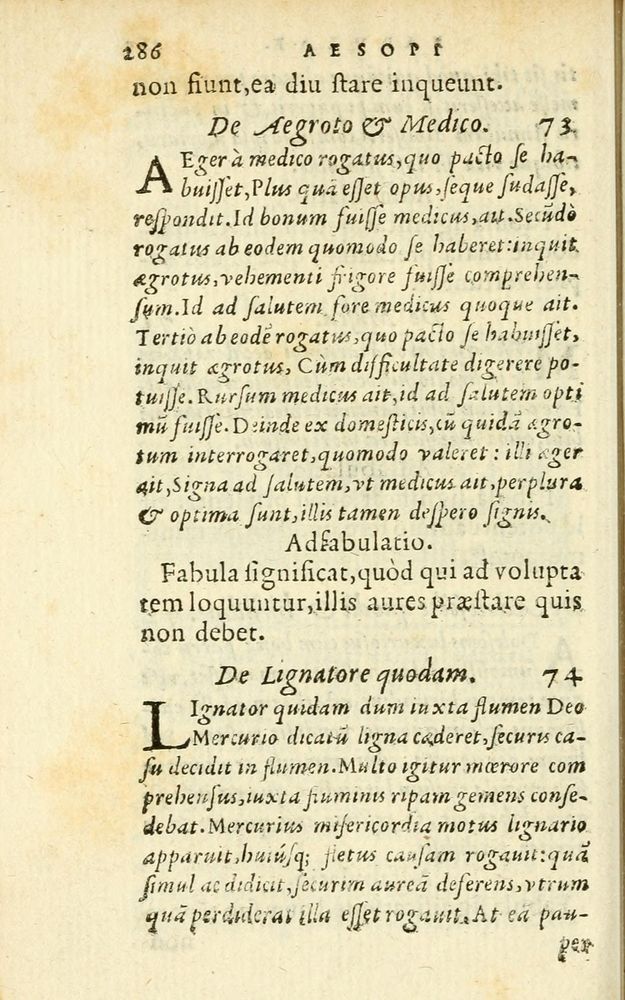 286 AESOPI
non fiunt,ea diu ſtare inqueunt.
De Aegroto & Medico. 73
AEger à medico rogatus,quo pacto ſe ha-
buiſſet,Plus quā eſſet opus,ſeque ſudaſſe,
reſpondit.Id bonum fuiſſe medicus,ait.Secūdò
rogatus ab eodem quomodo ſe haberet:inquit
ægrotus,vehementi frigore fuiſſe comprehen-
ſum.Id ad ſalutem fore medicus quoque ait.
Tertiò ab eodē rogatus,quo pacto ſe habuiſſet,
inquit ægrotus, Cùm difficultate digerere po-
tuiſſe. Rurſum medicus ait,id ad ſalutem opti
mū fuiſſe. Deinde ex domeſticis,cū quidā ægro-
tum interrogaret,quomodo valeret: illi æger
ait,Signa ad ſalutem,vt medicus ait,perplura
& optima ſunt,illis tamen deſpero ſignis.
Adfabulatio.
Fabula ſignificat,quòd qui ad volupta
tem loquuntur,illis aures præſtare quis
non debet.
De Lignatore quodam. 74
LIgnator quidam dum iuxta flumen Deo
Mercurio dicatū ligna cæderet,ſecuris ca-
ſu decidit in flumen.Multo igitur mœrore com
prehenſus,iuxta fluminis ripam gemens conſe-
debat.Mercurius miſericordia motus lignario
apparuit,huiúſq; fletus cauſam rogauit:quā
ſimul ac didicit,ſecurim aureā deferens,vtrum
quā perdiderat illa eſſet rogauit. At eā pau-
per